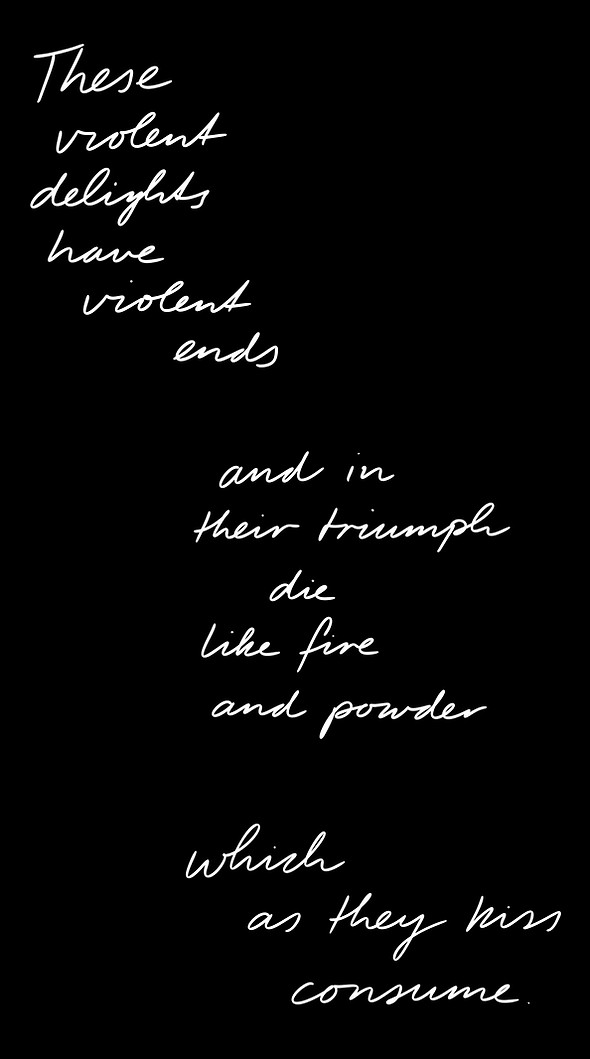 These
violent
delights
have
violent
ends
and in
their triumph
die
like fire
and powder
which
as they kiss
consume.